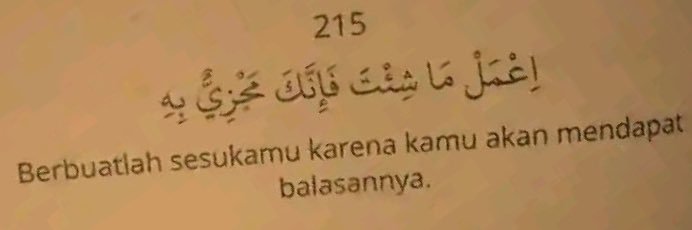 215
اِعْمَلْ مَا شِئْتَ فَإِنَّكَ مَجْزِيٌّ بِهِ
Berbuatlah sesukamu karena kamu akan mendapat
balasannya.